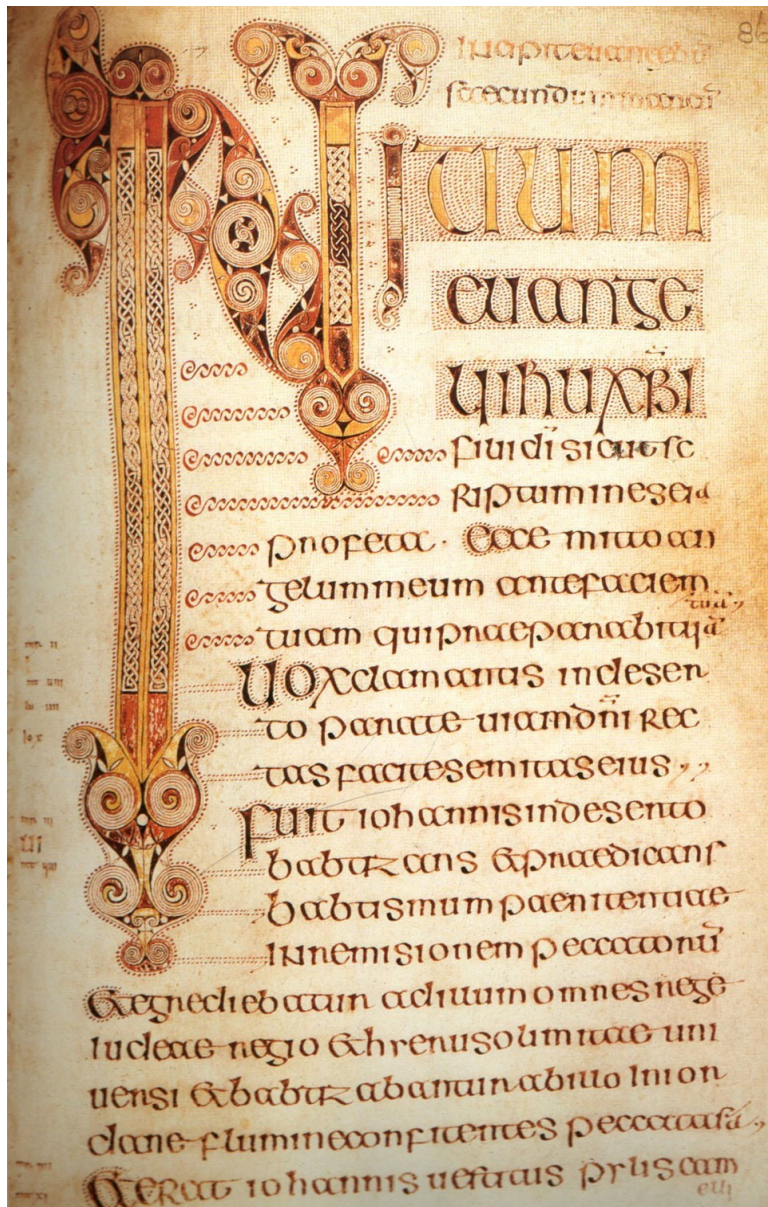 86
Incipit euangeliu
secundum marcū
INITIUM
euange
lii ihu xp̄i
fili di sicut sc
riptum in esei a
profeta · Ecce mitto an
gelum meum ante faciem
tuam qui praeparabit uiā
tuā
Uox clamantis in deser
to parate uiam dn̄i rec
tas facite semitas eius ,,
Fuit iohannis in deserto
babtizans & praedicans
babtismum paenitentiae
in remisionem peccatorū
& egrediebatur ad illum omnes regē
iudeae regio & hrerusolimitae uni
uersi & babtizabantur ab illo in ior
dane flumine confitentes peccata sā
& erat iohannis uestitus pylis cam
eli